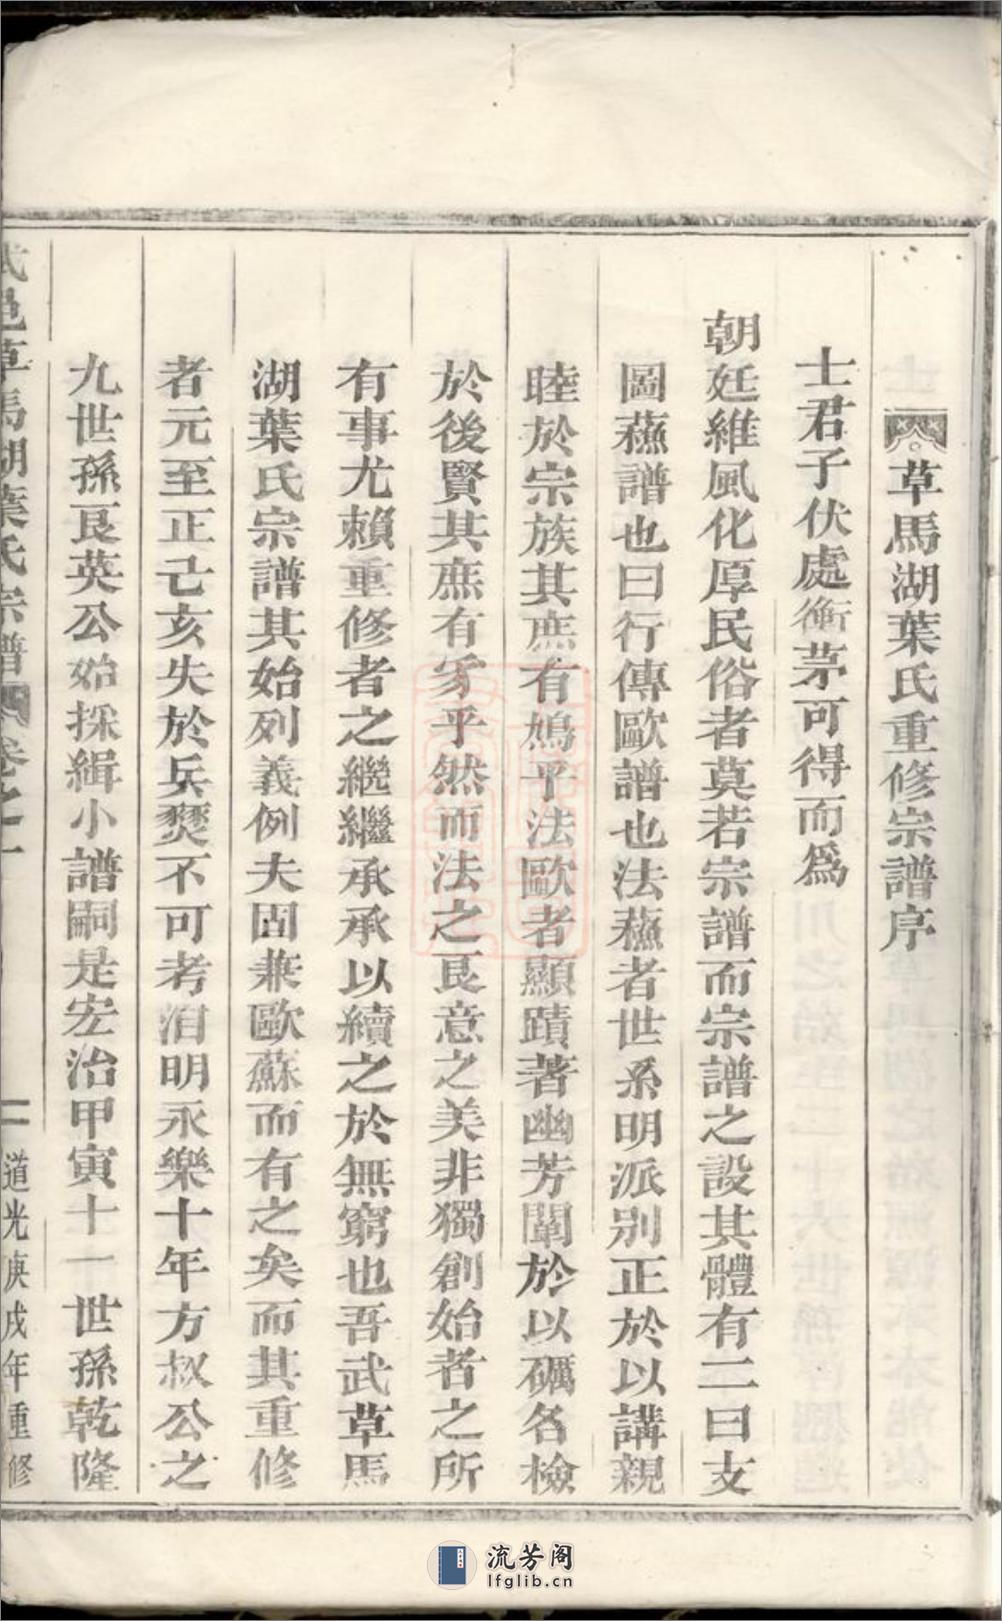 草馬湖葉氏重修宗譜序
士君子伏處衡茅可得而爲
朝廷維風化厚民俗者莫若宗譜而宗譜之設其體有二曰支
圖蘓譜也曰行傳歐譜也法蘓者世系明派别正於以講親
睦於宗族其庶有鳩乎法歐者顯蹟著幽芳闡於以礪名檢
於後賢其庶有豸乎然而法之良意之美非獨創始者之所
有事尤賴重修者之繼繼承承以續之於無窮也吾武草馬
湖葉氏宗譜其始列義例夫固兼歐蘇而有之矣而其重修
者元至正己亥失於兵燹不可考洎明永樂十年方叔公之
九世孫良英公始採緝小譜嗣是宏治甲寅十一世孫乾隆
武邑草馬湖葉氏宗譜 卷之一 一 道光庚戌年重修
流芳阁
lfglib.cn